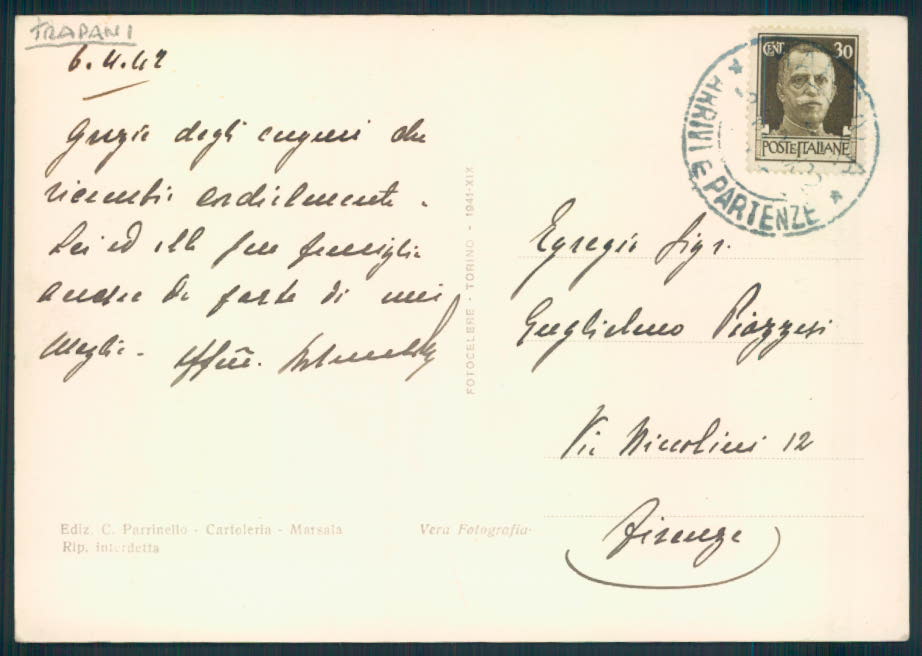 TRAPANI
6.4.42
Grazie degli auguri che
ricambio cordialmente.
Lei ed alla Sua famiglia
anche da parte di mia
moglie. Aff.mo
FOTOCELERE - TORINO - 1941-XIX
CENT 30
POSTE ITALIANE
ARRIVI E PARTENZE
Egregio Sigr.
Guglielmo Piazzesi
Via Niccolini 12
Firenze
Ediz. C. Parrinello - Cartoleria - Marsala
Rip. interdetta
Vera Fotografia-